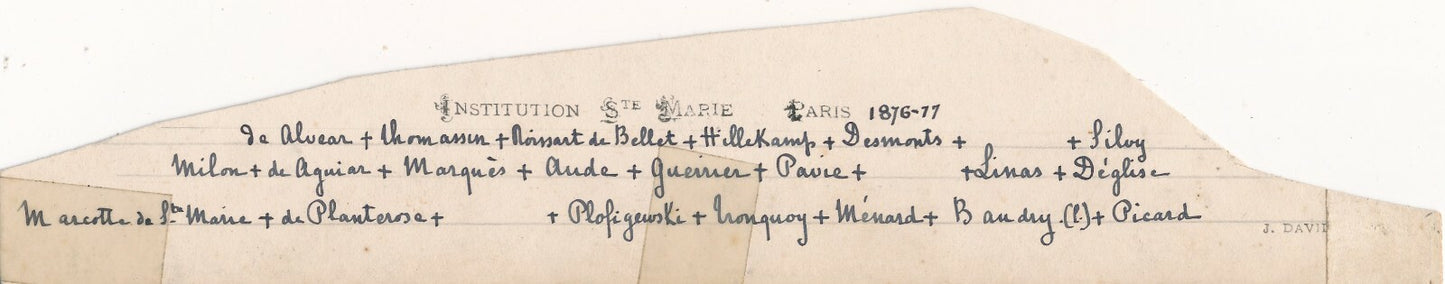 INSTITUTION STE MARIE PARIS 1876-77
de Alvear + Thomassin + Roissart de Bellet + Hillekamp + Desmonts + + Silvy
Milon + de Aguiar + Marquès + Aude + Guerrier + Pavie + + Linas + Déglise
Marcotte de Ste Marie + de Planterose + + Plofigewski + Tronquoy + Ménard + Baudry (l.) + Picard
J. DAVID